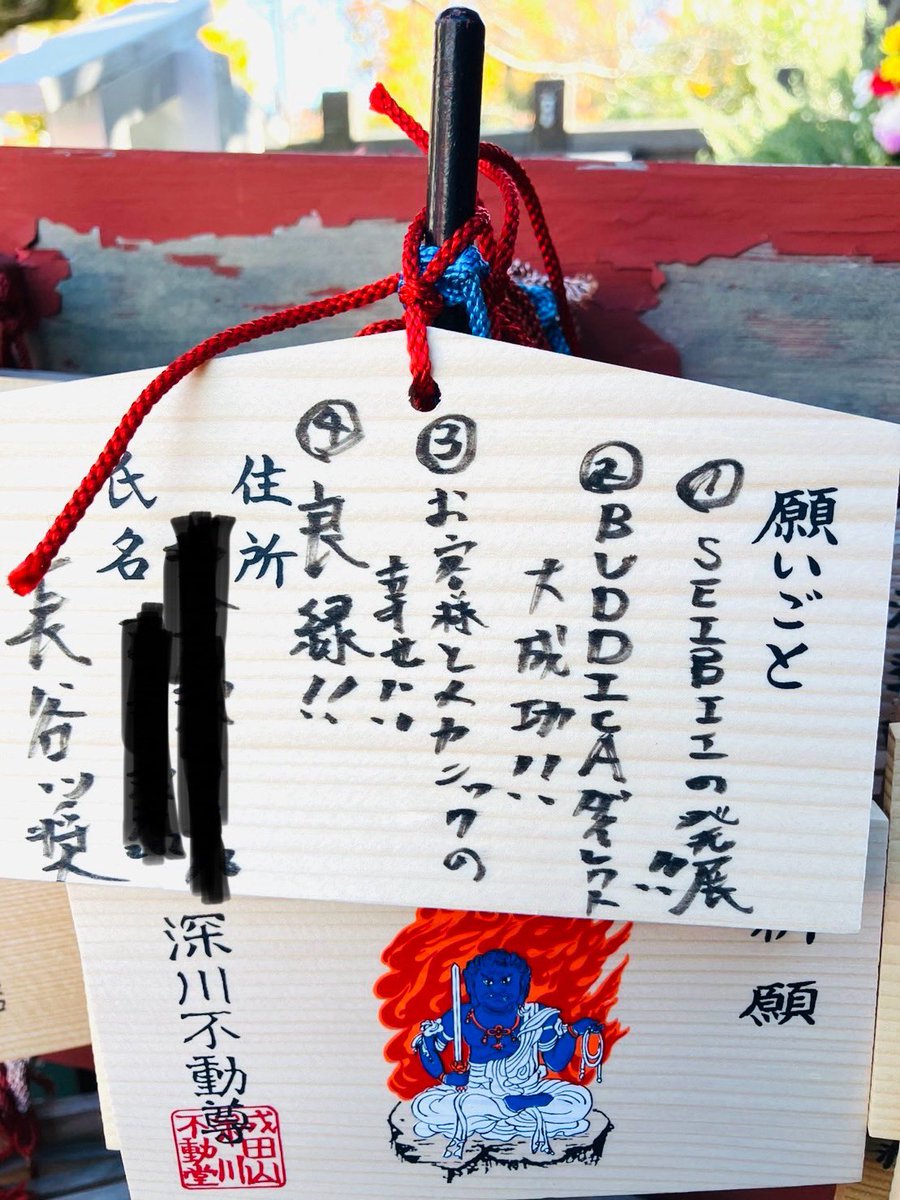 願いごと
①SEIBIIの発展!!
②BUDDICAダイレクト
大成功!!
③お客様とメカニックの
幸せ!!
④良縁!!
住所
氏名
長谷川奨
願
深川不動尊
成田山
川
不動堂